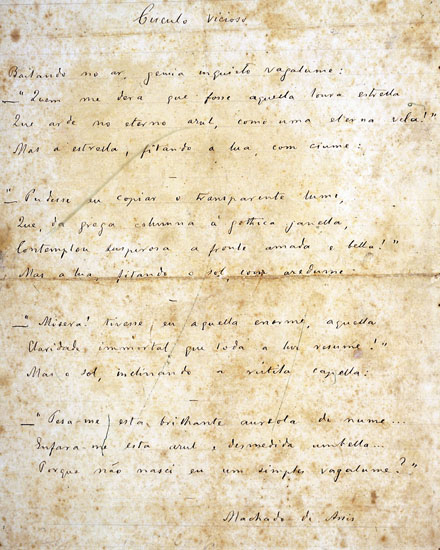 Circulo vicioso
Bailando no ar, gemia inquieto vagalume:
—"Quem me dera que fosse aquella loura estrella
Que arde no eterno azul, como uma eterna vela!"
Mas a estrella, fitando a lua, com ciume:
—"Pudesse eu copiar o transparente lume,
Que, da grega columna á gothica janella,
Contemplou, suspirosa, a fronte amada e bella!"
Mas a lua, fitando o sol, com azedume:
—"Misera! tivesse eu aquella enorme, aquella
Claridade immortal, que toda a luz resume!"
Mas o sol, inclinando a rutila capella:
—"Pesa-me esta brilhante aureola de nume...
Enfara-me esta azul e desmedida umbella...
Porque não nasci eu um simples vagalume?"
Machado de Assis